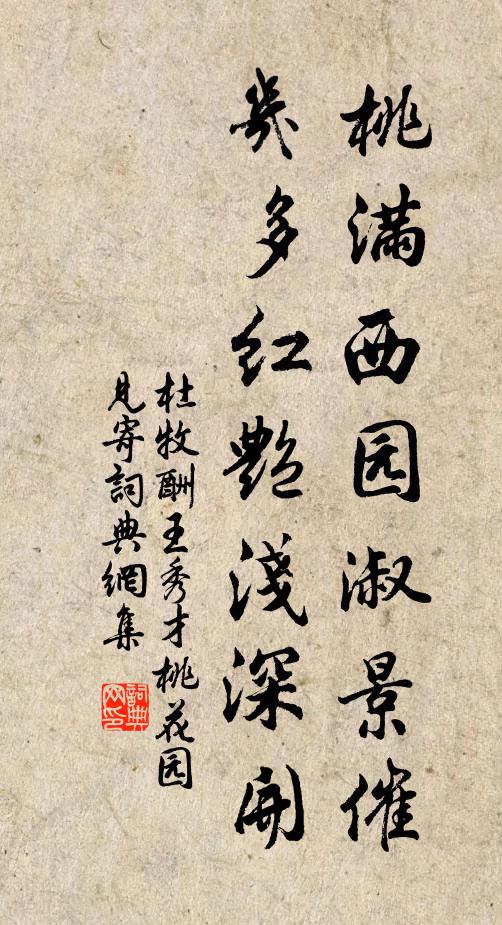 桃满西园淑景催
幾多红艷淺深開
杜牧酬王秀才桃花园
見寄詞典網集
詞典
网印